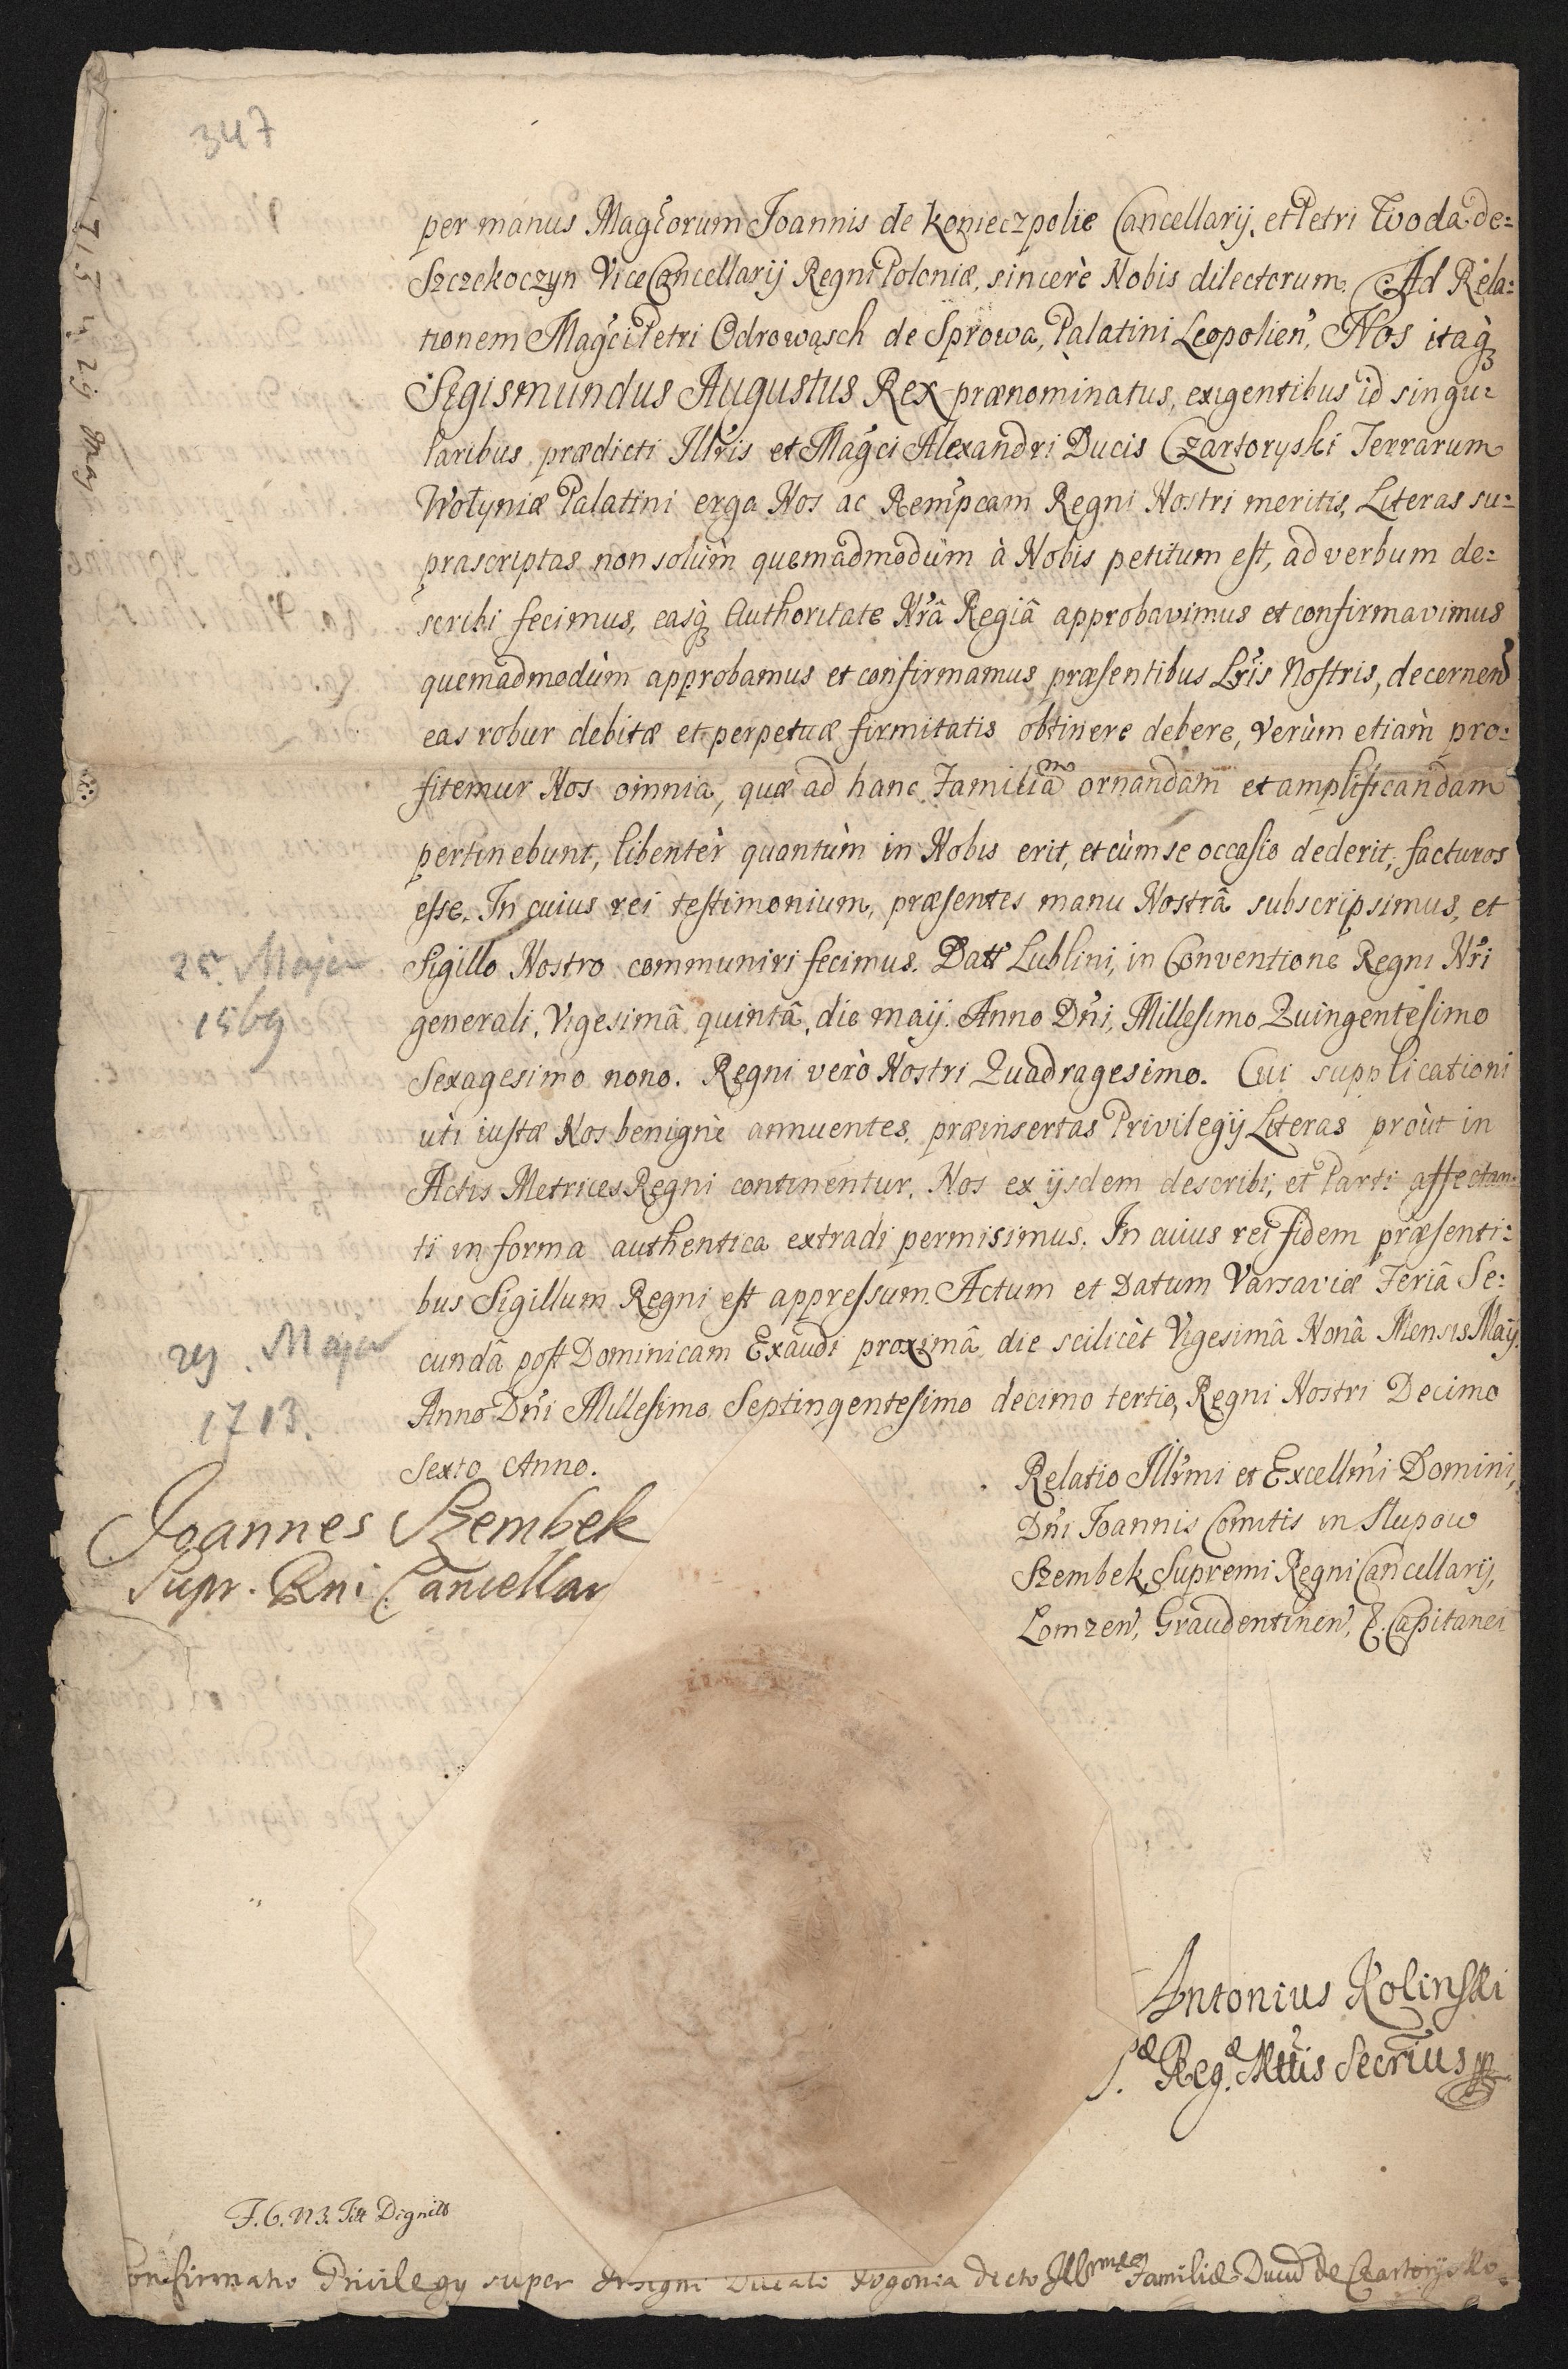 347
per manus Magcorum Joannis de Konieczpolie Cancellarij, et Petri Woda de=
Szczekoczyn ViceCancellarij Regni Poloniæ, sincerè Nobis dilectorum. Ad Rela=
tionem Magci Petri Odrowąsch de Sprowa, Palatini Leopolien, Nos itaq3
Sigismundus Augustus Rex prænominatus, exigentibus id singu=
laribus prædicti Illris et Magci Alexandri Ducis Czartoryski Terrarum
Wołyniæ Palatini erga Nos ac Rempcam Regni Nostri meritis, Literas su=
prascriptas non solùm quemadmodùm à Nobis petitum est, ad verbum de=
scribi fecimus, easq3 Authoritate Nrâ Regiâ approbavimus et confirmavimus
quemadmodùm approbamus et confirmamus præsentibus Lris Nostris, decernen
eas robur debitæ et perpetuæ firmitatis obtinere debere, verùm etiam pro=
fitemur Nos omnia, quæ ad hanc Familiam ornandam et amplificandam
pertinebunt, libentèr quantùm in Nobis erit, et cùm se occasio dederit, facturos
esse. In cuius rei testimonium, præsentes manu Nostrâ subscripsimus, et
Sigillo Nostro communiri fecimus. Datt Lublini, in Conventione Regni Nri
generali, Vigesimâ quintâ, die maij. Anno Dni, Millesimo Quingentesimo
Sexagesimo nono. Regni verò Nostri Quadragesimo. Cui supplicationi
uti iustæ Nos benignè annuentes, præinsertas Privilegij Literas proùt in
Actis Metrices Regni continentur, Nos ex ijsdem describi, et Parti affectan=
ti in forma authentica extradi permisimus. In cuius rei fidem præsenti=
bus Sigillum Regni est appressum. Actum et Datum Varsaviæ Feriâ Se=
cundâ post Dominicam Exaudi proximâ die scilicèt Vigesimâ Nonâ Mensis Maij.
Anno Dni Millesimo Septingentesimo decimo tertio, Regni Nostri Decimo
Sexto Anno.
25. Maja
1569
29. Maja
1713.
Joannes Szembek
Supr. Rni Cancellar
Relatio Illrmi et Excellmi Domini,
Dni Joannis Comitis in Slupow
Szembek, Supremi Regni Cancellarij,
Lomzen, Graudentinen, &. Capitanei
Antonius Rolinski
S. Reg. Mttis Secrius
F. 6. N 3. Titt Dignit
Confirmatio Privilegy super Insigni Ducali Pogonia dicto Illrmæ Familiæ Ducū de Czartorysko.